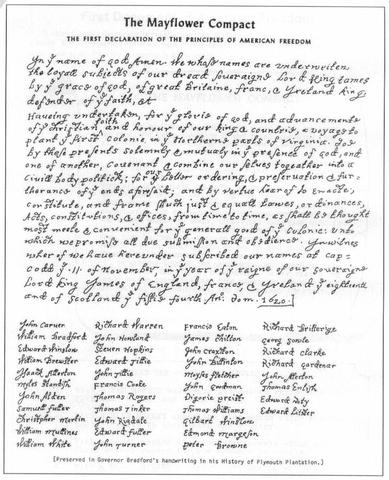 The Mayflower Compact
THE FIRST DECLARATION OF THE PRINCIPLES OF AMERICAN FREEDOM
In yͤ name of god Amen. We whose names are underwriten
the loyall subjects of our dread soveraigne Lord King James
by yͤ grace of god, of great Britaine, franc, & Ireland king
defender of yͤ faith, &c
Haveing undertaken, for yͤ glorie of god, and advancemente
of yͤ christian faith and honour of our king & countrie, a voyage to
plant yͤ first colonie in yͤ Northerne parts of Virginia. Doe
by these presents solemnly & mutualy in yͤ presence of god, and
one of another, covenant & combine our selves togeather into a
civill body politick; for our better ordering, & preservation & fur-
therance of yͤ ends aforesaid; and by vertue hearof to enacte,
constitute, and frame such just & equall lawes, ordinances,
Acts, constitutions, & offices, from time to time, as shall be thought
most meete & convenient for yͤ generall good of yͤ colonie: unto
which we promise all due submission and obedience. In witnes
wherof we have hereunder subscribed our names at cap-
Codd yͤ .11. of November, in yͤ year of yͤ raigne of our soveraigne
Lord king James of England, france, & Ireland yͤ eighteenth
and of scotland yͤ fiftie fourth. An. dom. 1620.
John Carver Richard Warren Francis Eaton Richard Britterige
William Bradford John Howland James Chilton Georg Soule
Edward Winslow Steven Hopkins John Craxton Richard Clarke
William Brewster Edward Tillie John Billinton Richard Gardenar
Isaack Allerton John Tillie Moyses Fletcher John Allerton
Myles Standish Francis Cooke John Goodman Thomas English
John Alden Thomas Rogers Digorie Preist Edward Doty
Samuell Fuller Thomas Tinker Thomas Williams Edward Leister
Christopher Martin John Rigdale Gilbert Winslow
William Mullines Edward Fuller Edmond Margeson
William White John Turner Peter Browne
[Preserved in Governor Bradford's Handwriting in his History of Plymouth Plantation.]